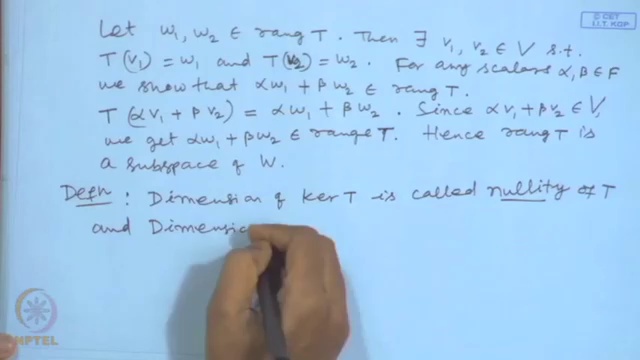 © CET
I.I.T. KGP
Let w₁, w₂ ∈ rang T. Then ∃ v₁, v₂ ∈ V s.t.
T(v₁) = w₁ and T(v₂) = w₂. For any scalars α, β ∈ F
we show that αw₁ + βw₂ ∈ rang T.
T(αv₁ + βv₂) = αw₁ + βw₂. Since αv₁ + βv₂ ∈ V,
we get αw₁ + βw₂ ∈ range T. Hence rang T is
a subspace of W.
Defn : Dimension of ker T is called nullity of T
and Dimensio
NPTEL